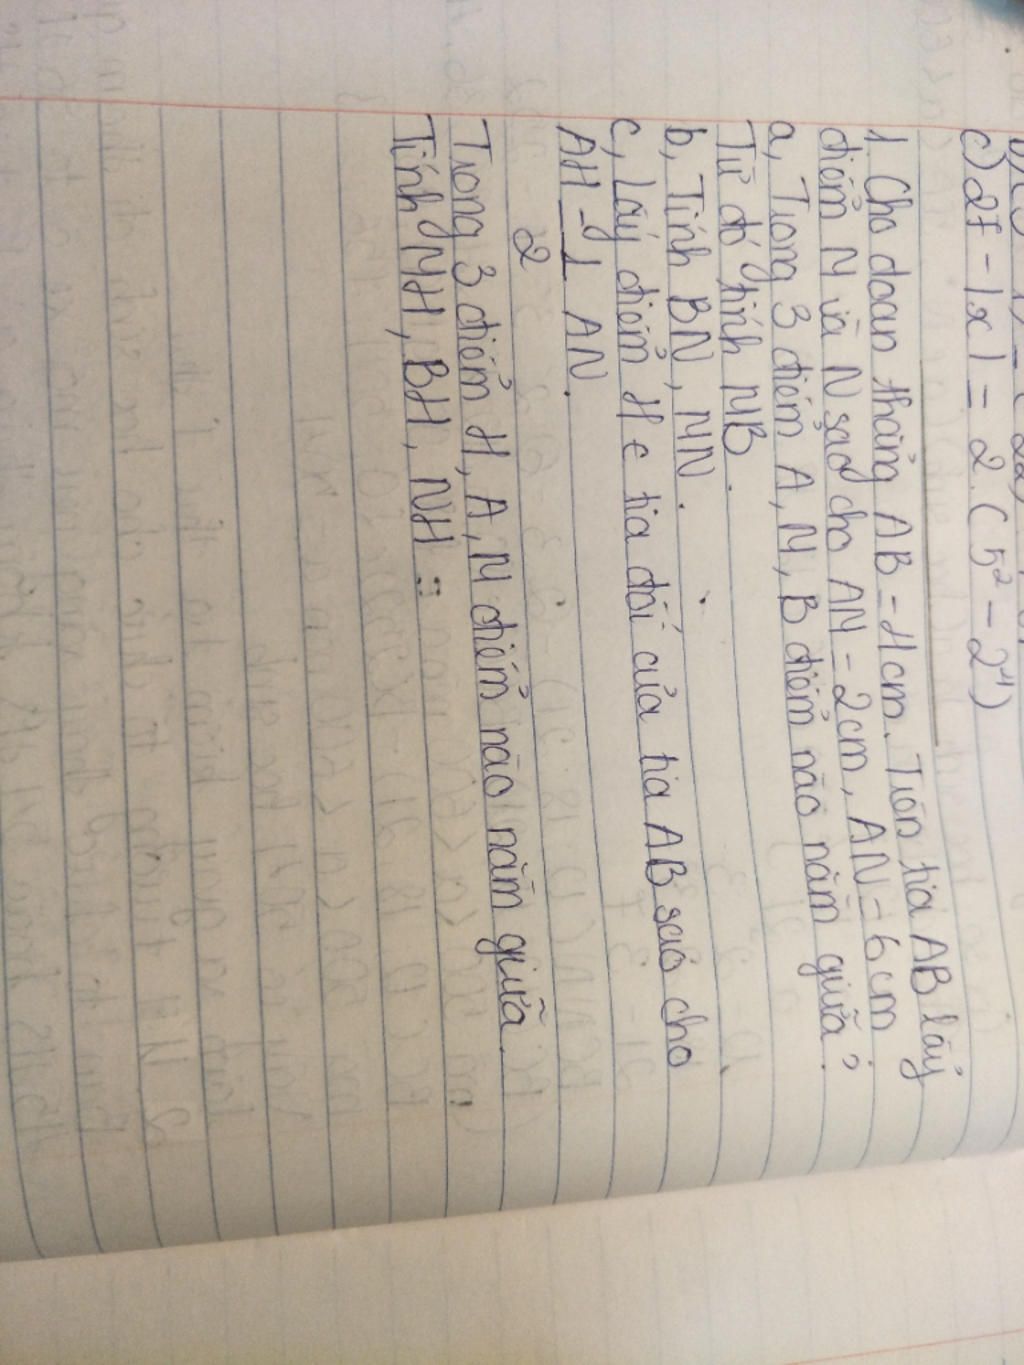 c) 27 - |x| = 2. (5² - 2⁴)
1. Cho đoan thẳng AB = 4cm. Trên tia AB lấy
điểm M và N sao cho AM = 2cm, AN = 6cm
a, Trong 3 điểm A, M, B điểm nào nằm giữa?
Từ đó tính MB.
b, Tính BN, MN.
c, Lấy điểm H ∈ tia đối của tia AB sao cho
AH = 1/2 AN.
Trong 3 điểm H, A, M điểm nào nằm giữa.
Tính MH, BH, NH =